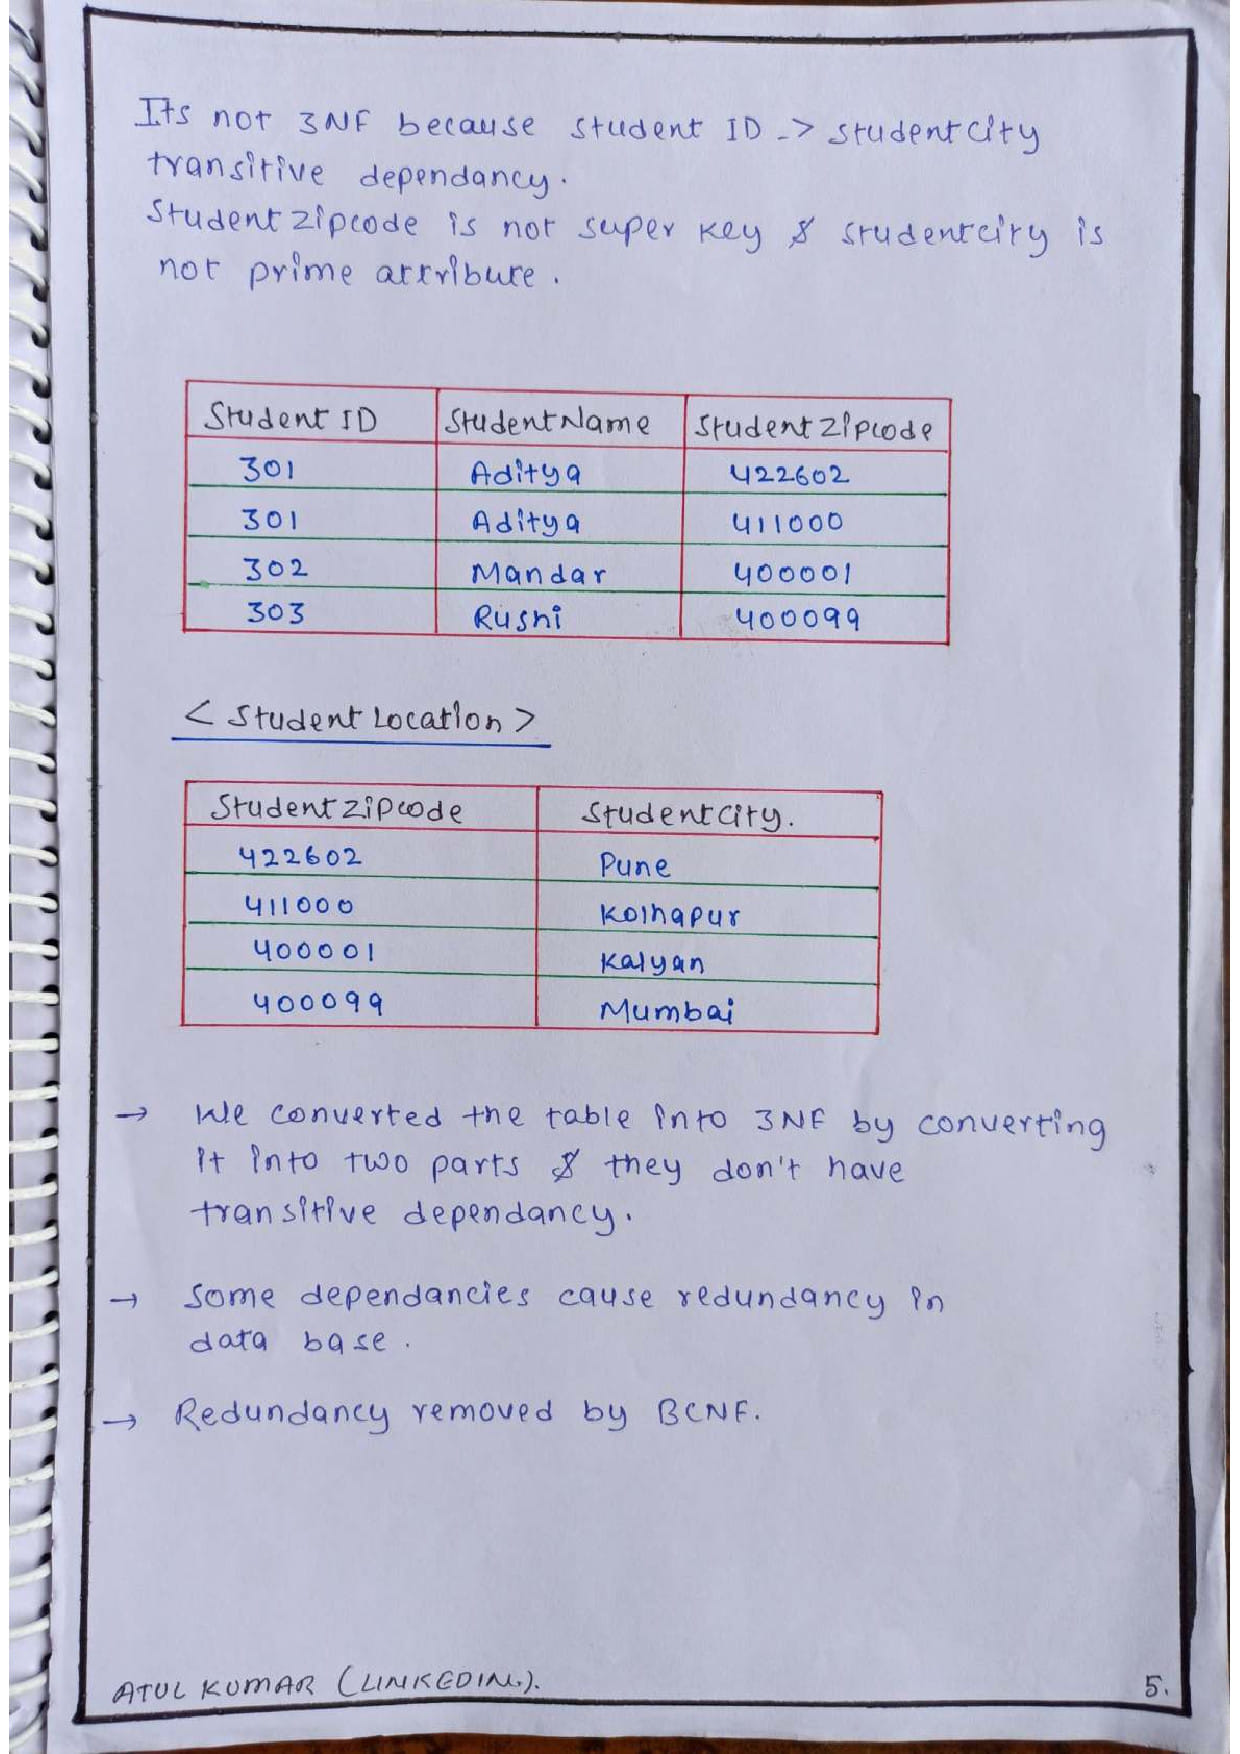 Its not 3NF because Student ID -> studentcity
transitive dependancy.
Student zipcode is not super key & studentcity is
not prime attribute.
Student ID StudentName Student Zipcode
301 Aditya 422602
301 Aditya 411000
302 Mandar 400001
303 Rushi 400099
< Student Location >
Student zipcode Studentcity.
422602 Pune
411000 Kolhapur
400001 Kalyan
400099 Mumbai
→ We converted the table into 3NF by converting
it into two parts & they don't have
transitive dependancy.
→ Some dependancies cause redundancy in
data base.
→ Redundancy removed by BCNF.
ATUL KUMAR (LINKEDIN.).
5.